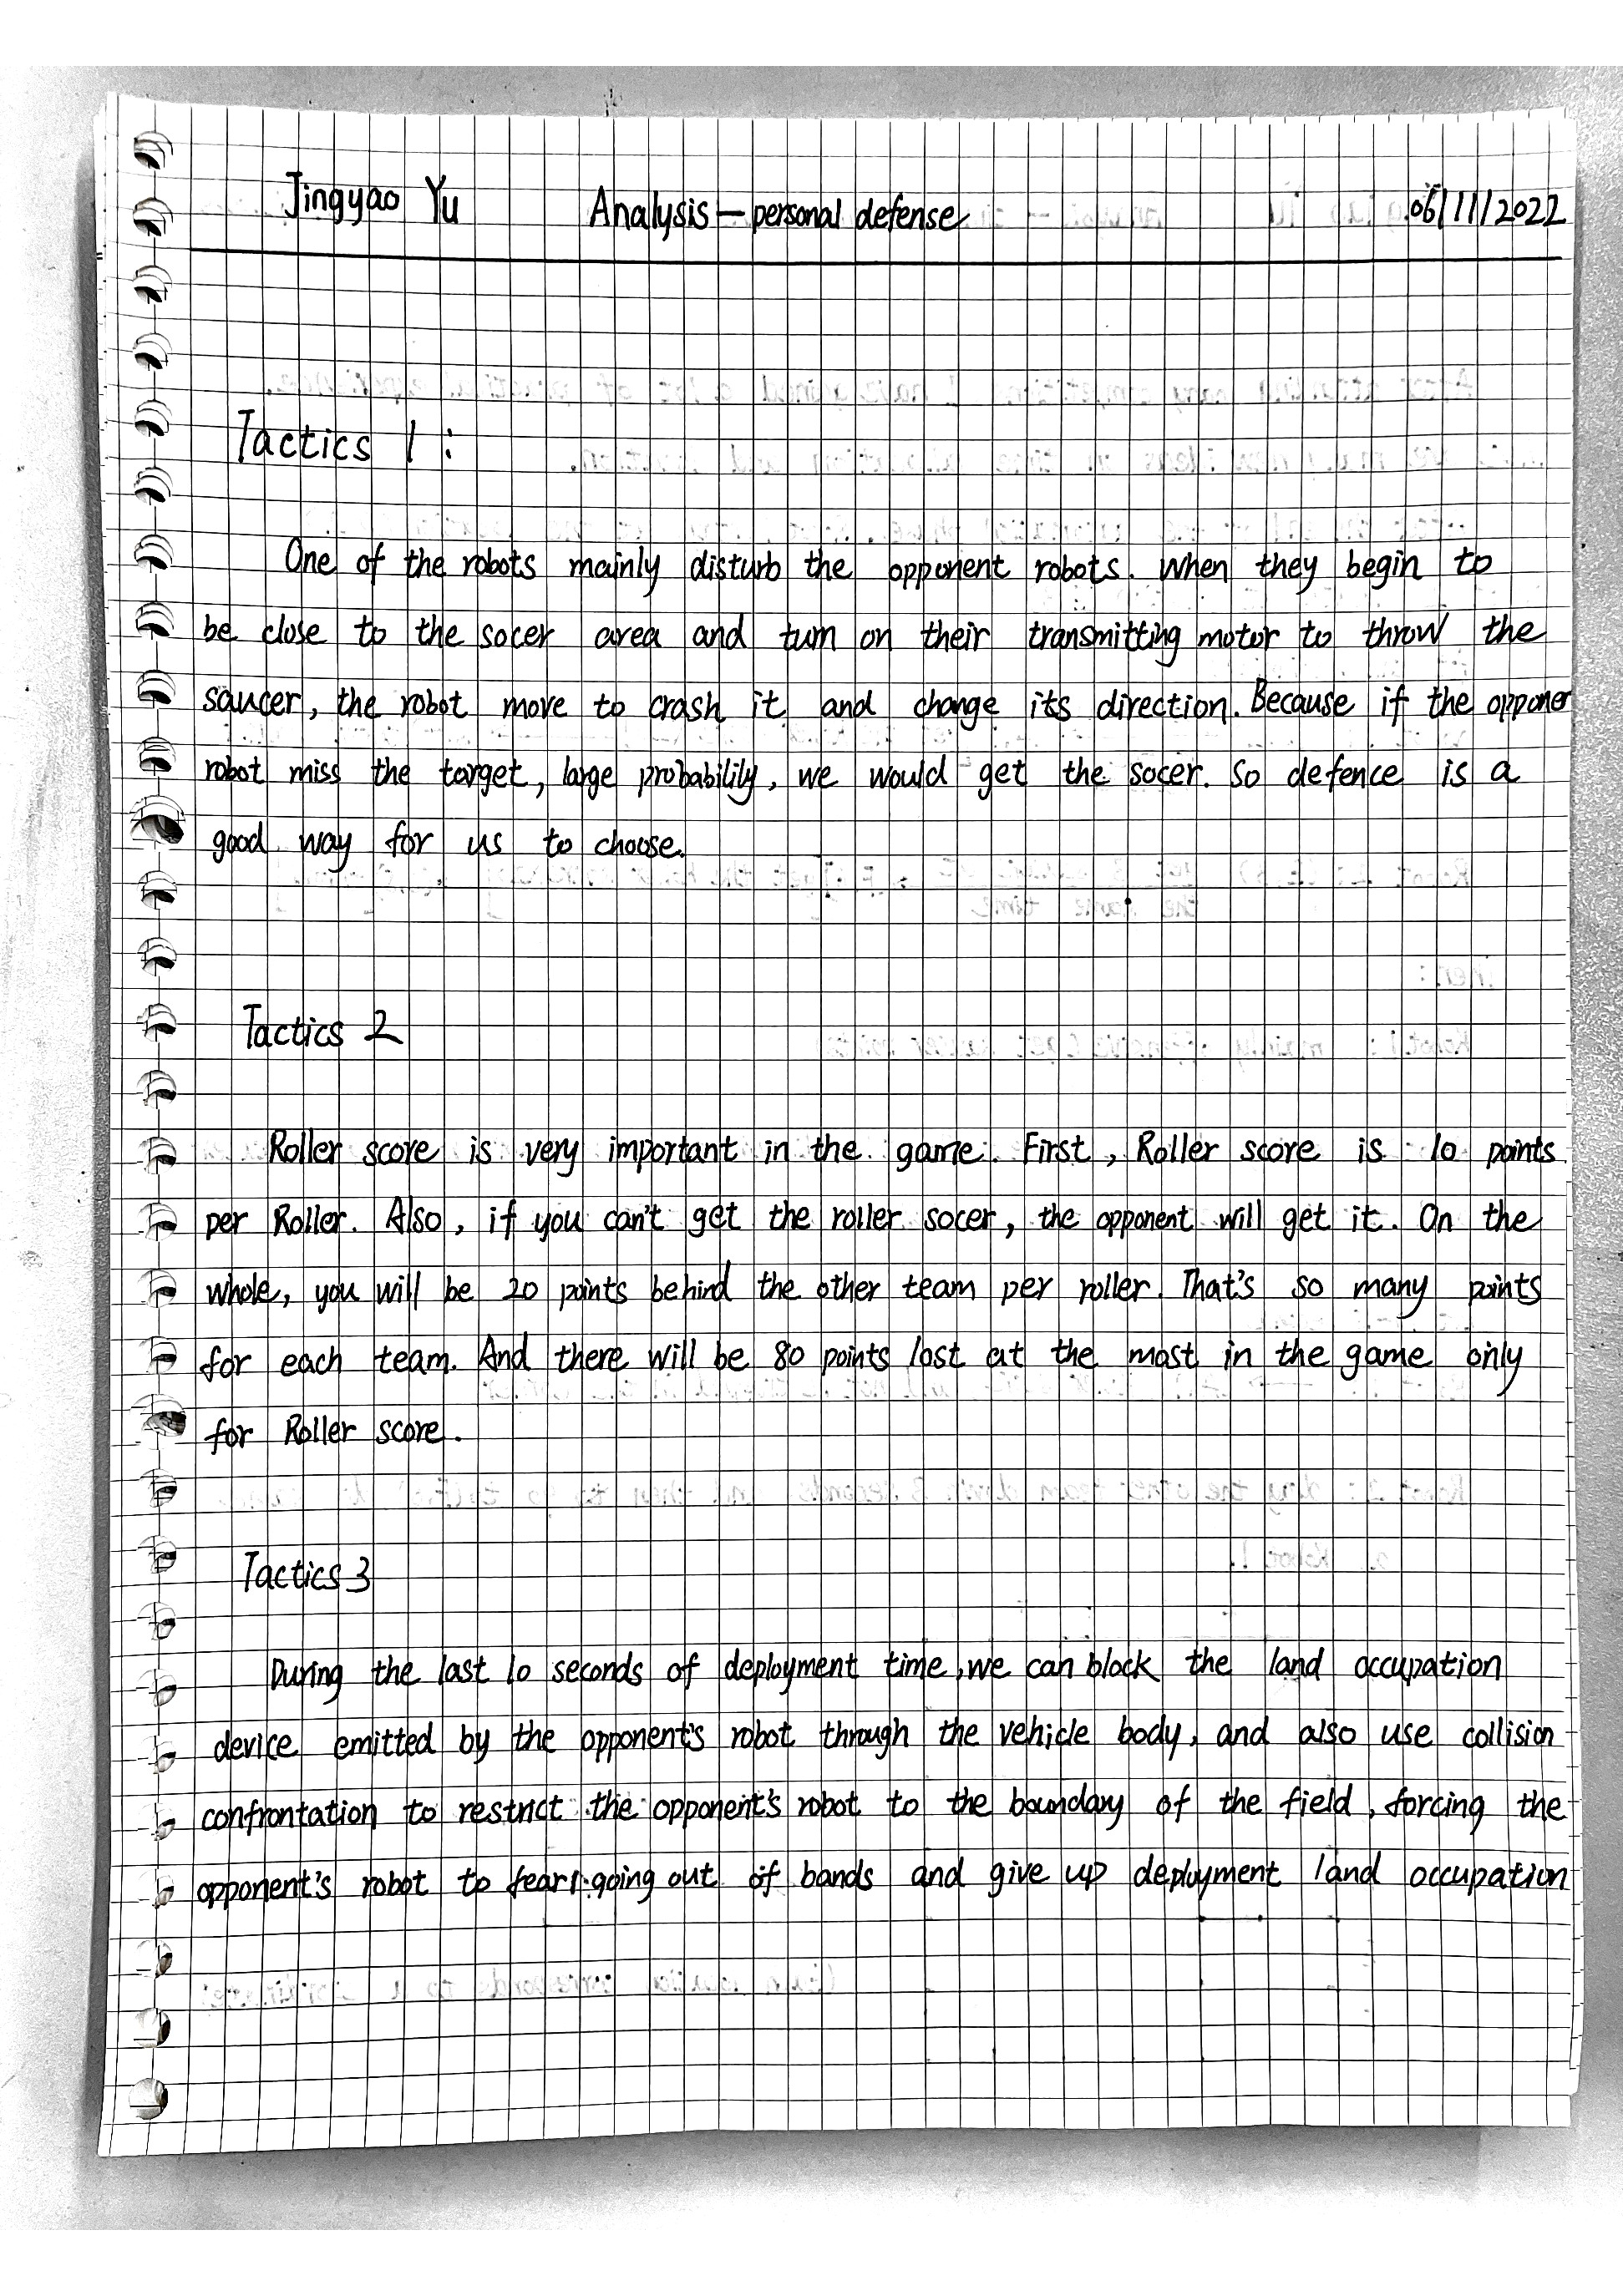 Jingyao Yu Analysis — personal defense 06/11/2022
Tactics 1 :
One of the robots mainly disturb the opponent robots. When they begin to
be close to the socer area and turn on their transmitting motor to throw the
saucer, the robot move to crash it and change its direction. Because if the oppone
robot miss the target, large probability, we would get the socer. So defence is a
good way for us to choose.
Tactics 2
Roller score is very important in the game. First, Roller score is 10 points
per Roller. Also, if you can't get the roller socer, the opponent will get it. On the
whole, you will be 20 points behind the other team per roller. That's so many points
for each team. And there will be 80 points lost at the most in the game only
for Roller score.
Tactics 3
During the last 10 seconds of deployment time, we can block the land occupation
device emitted by the opponent's robot through the vehicle body, and also use collision
confrontation to restrict the opponent's robot to the boundary of the field, forcing the
opponent's robot to fear going out of bands and give up deployment land occupation